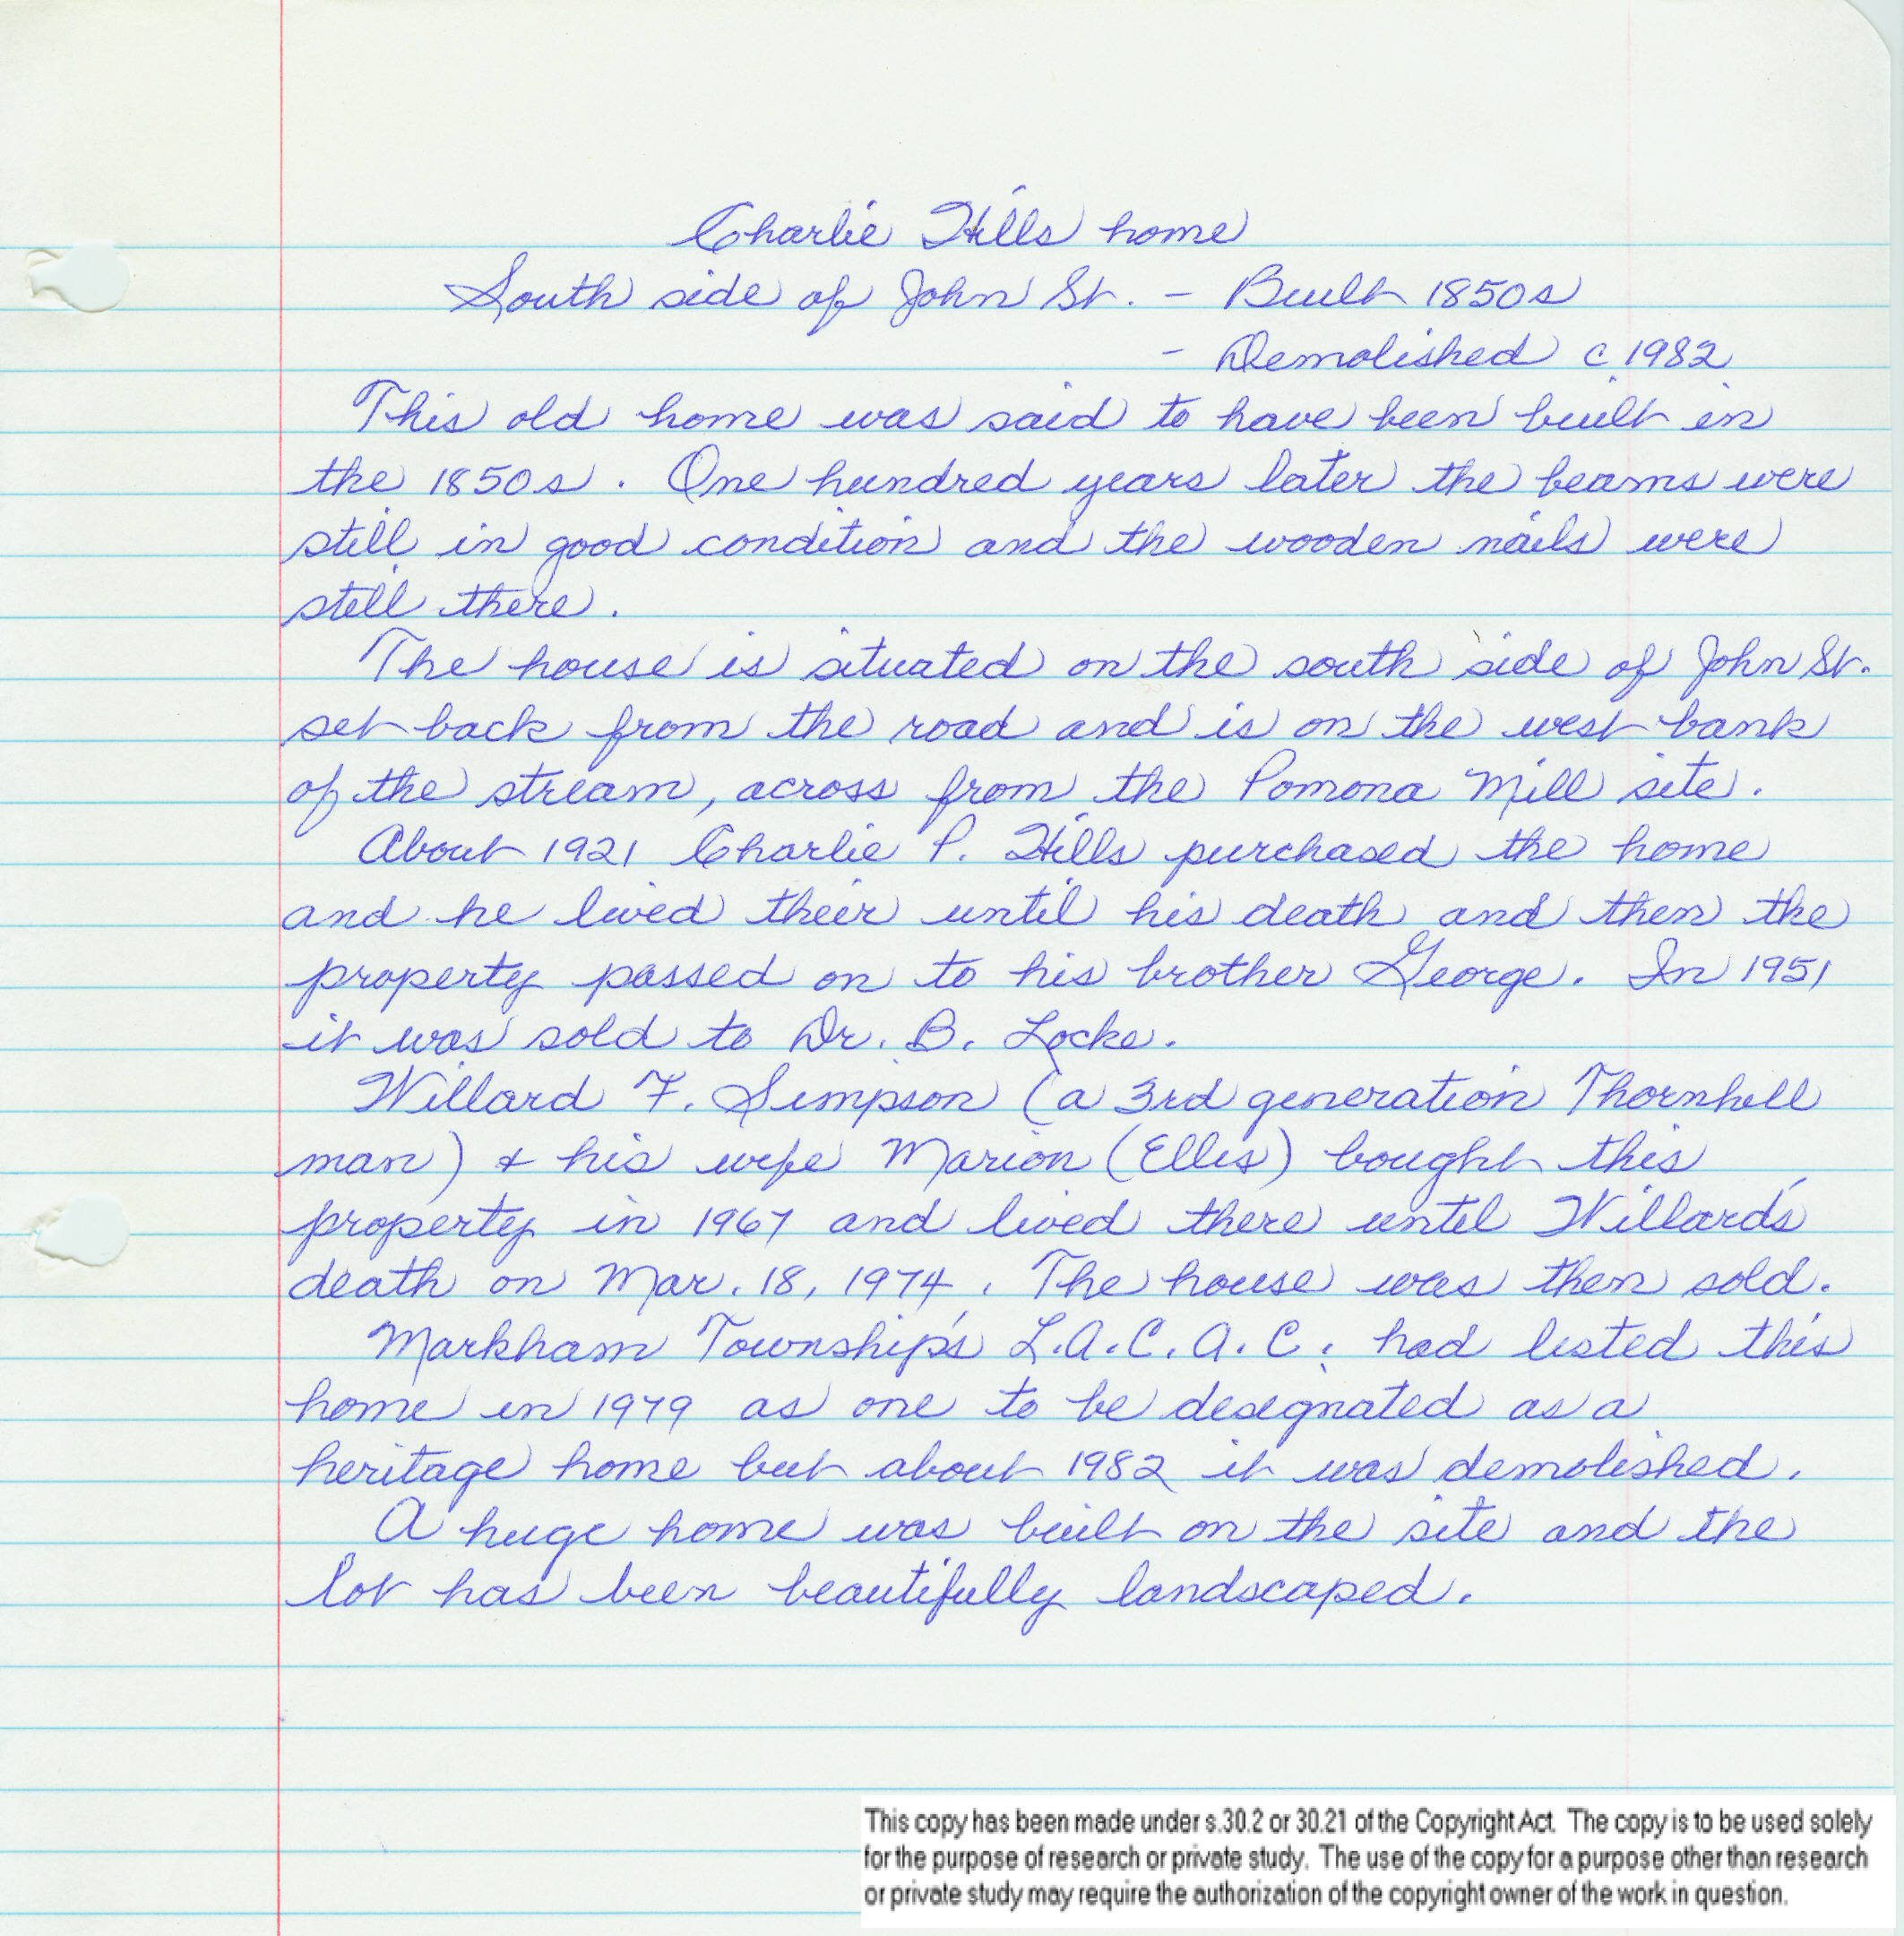 Charlie Hills home
South side of John St. - Built 1850s
- Demolished c 1982
This old home was said to have been built in
the 1850s. One hundred years later the beams were
still in good condition and the wooden nails were
still there.
The house is situated on the south side of John St.
set back from the road and is on the west bank
of the stream, across from the Pomona Mill site.
About 1921 Charlie P. Hills purchased the home
and he lived their until his death and then the
property passed on to his brother George. In 1951
it was sold to Dr. B. Locke.
Willard F. Simpson (a 3rd generation Thornhill
man) & his wife Marion (Ellis) bought this
property in 1967 and lived there until Willard's
death on Mar. 18, 1974. The house was then sold.
Markham Township's L.A.C.A.C. had listed this
home in 1979 as one to be designated as a
heritage home but about 1982 it was demolished.
A huge home was built on the site and the
lot has been beautifully landscaped.
This copy has been made under s.30.2 or 30.21 of the Copyright Act. The copy is to be used solely
for the purpose of research or private study. The use of the copy for a purpose other than research
or private study may require the authorization of the copyright owner of the work in question.